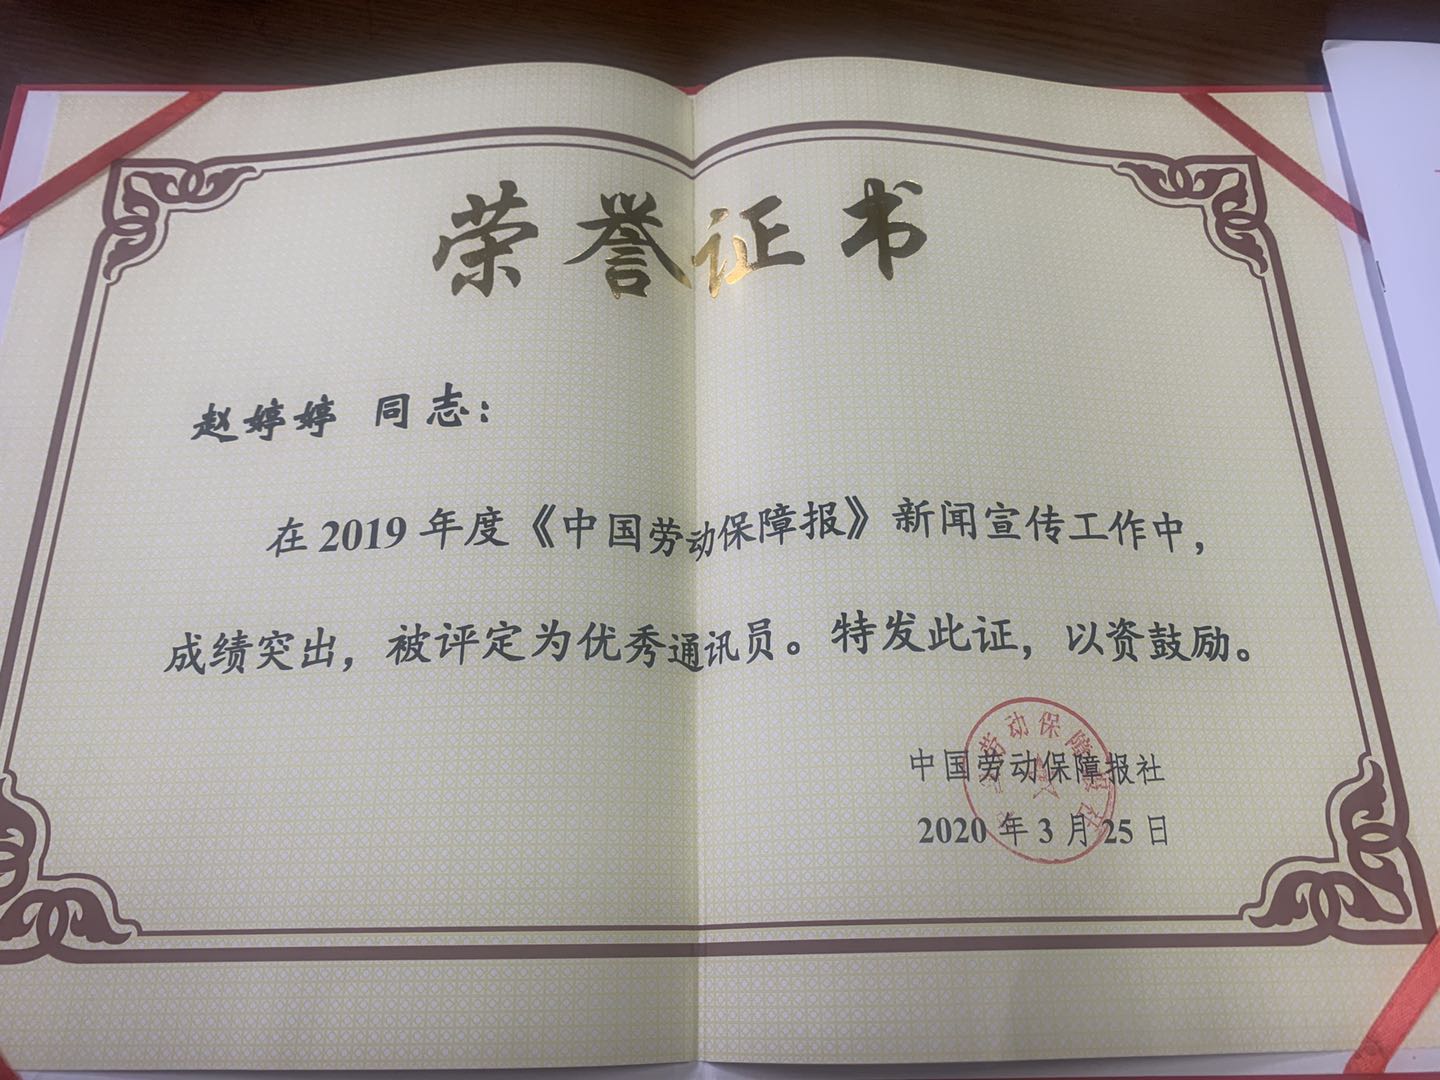 荣誉证书
赵婷婷 同志：
在2019年度《中国劳动保障报》新闻宣传工作中，
成绩突出，被评定为优秀通讯员。特发此证，以资鼓励。
中国劳动保障报社
2020年3月25日
劳动保障报社